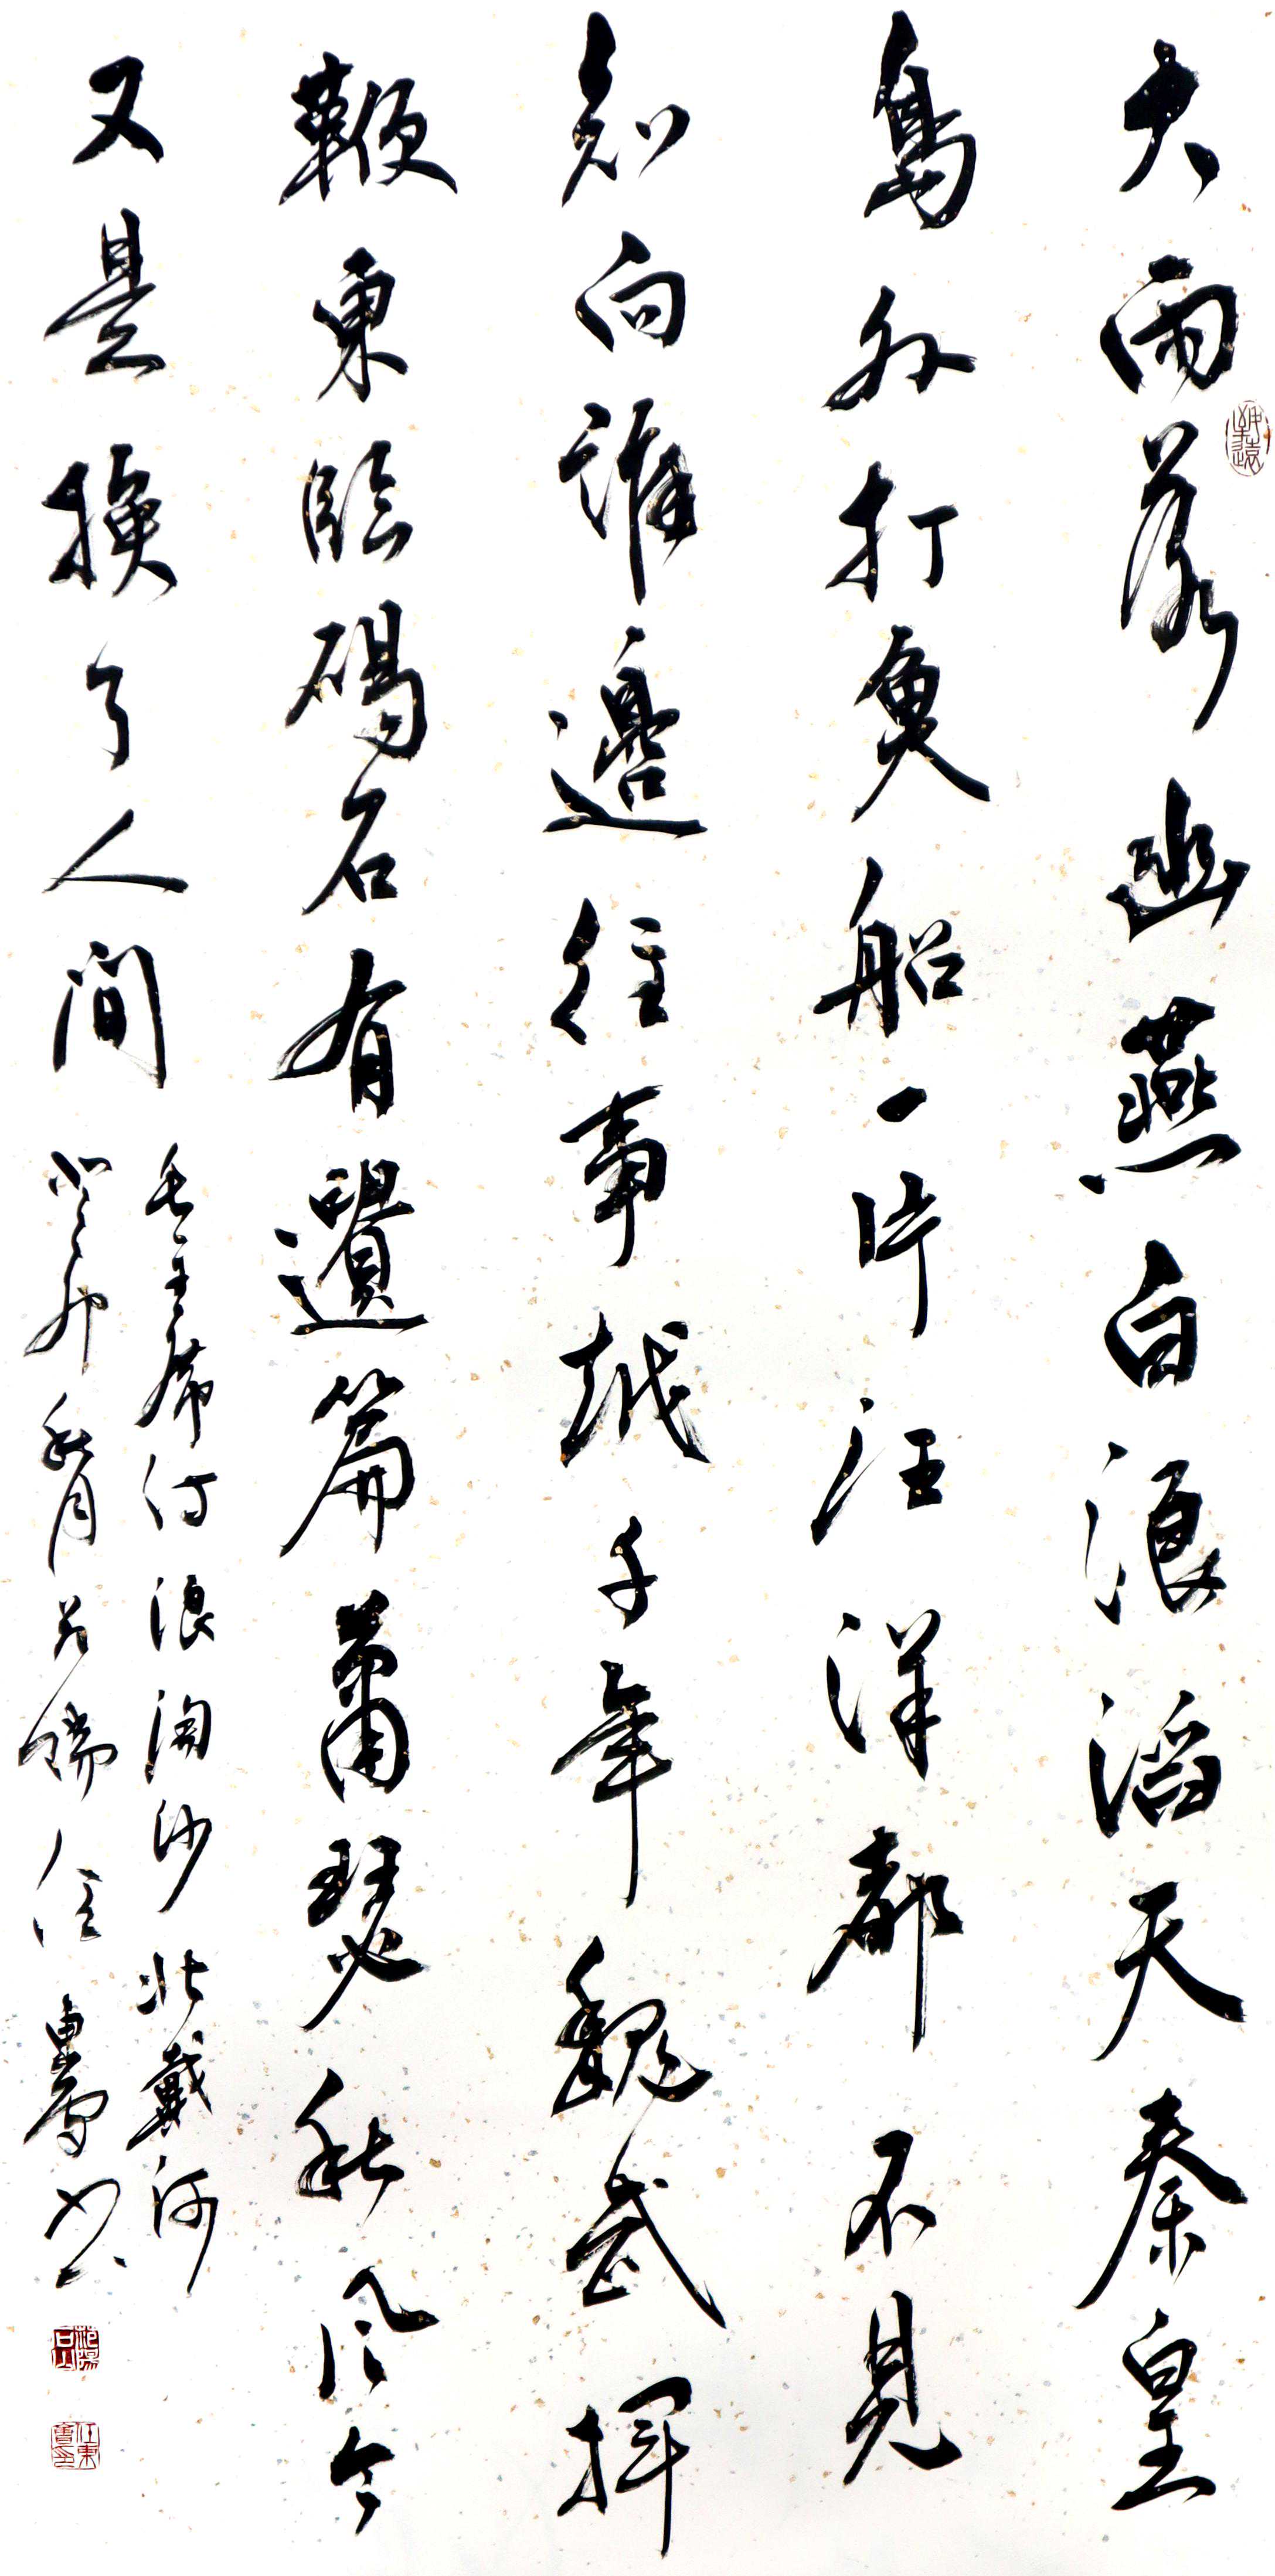 大雨落幽燕白浪滔天秦皇
島外打魚船一片汪洋都不見
知向誰邊往事越千年魏武揮
鞭東臨碣石有遺篇蕭瑟秋風今
又是換了人間
毛主席詞浪淘沙北戴河
癸卯秋月於任東魯书
任東魯印